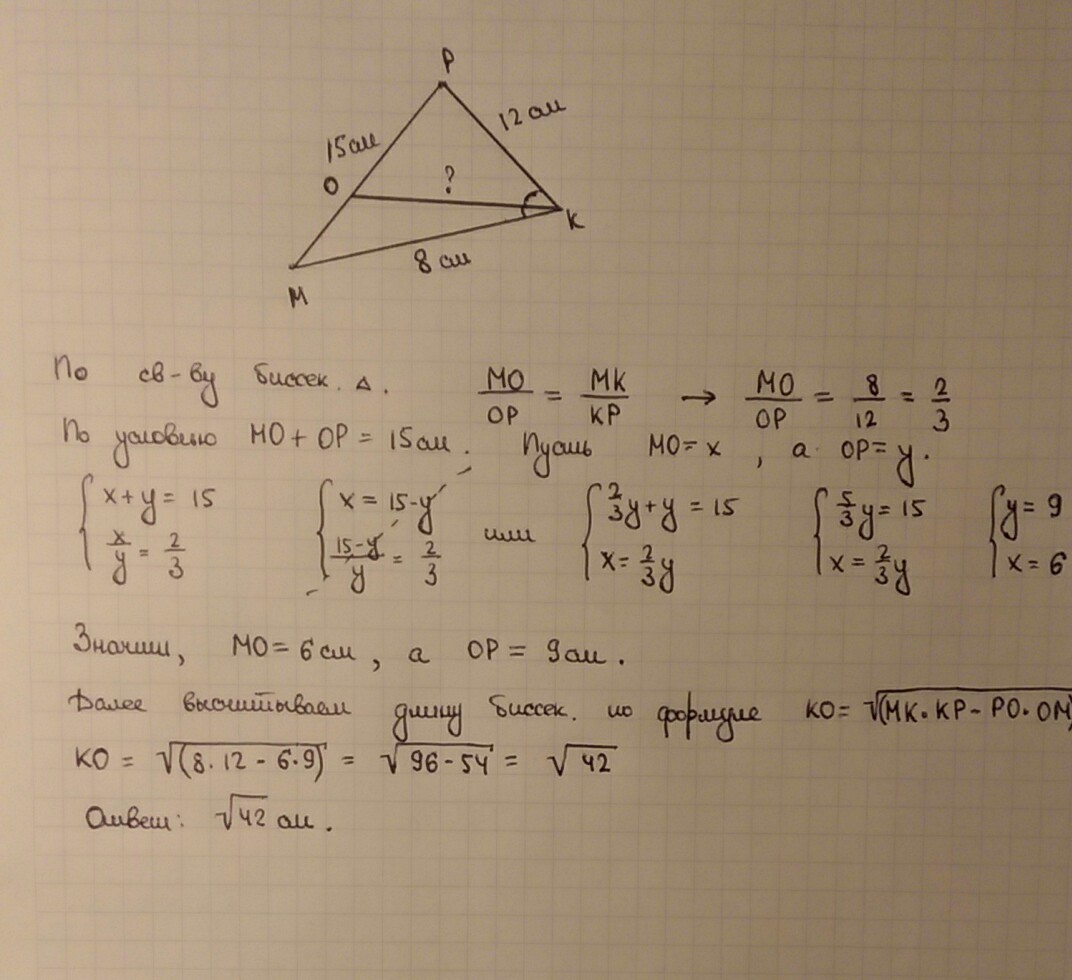 P
15см
12см
O
?
K
8 см
M
По св-ву биссек. △. MO/OP = MK/KP → MO/OP = 8/12 = 2/3
По условию MO + OP = 15см. Пусть MO = x, а OP = y.
{ x + y = 15 { x = 15 - y или { 2/3y + y = 15 { 5/3y = 15 { y = 9
x/y = 2/3 15-y/y = 2/3 x = 2/3y x = 2/3y x = 6
Значит, MO = 6см, а OP = 9см.
Далее высчитываем длину биссек. по формуле KO = √(MK·KP - PO·OM)
KO = √(8·12 - 6·9) = √96-54 = √42
Ответ: √42 см.